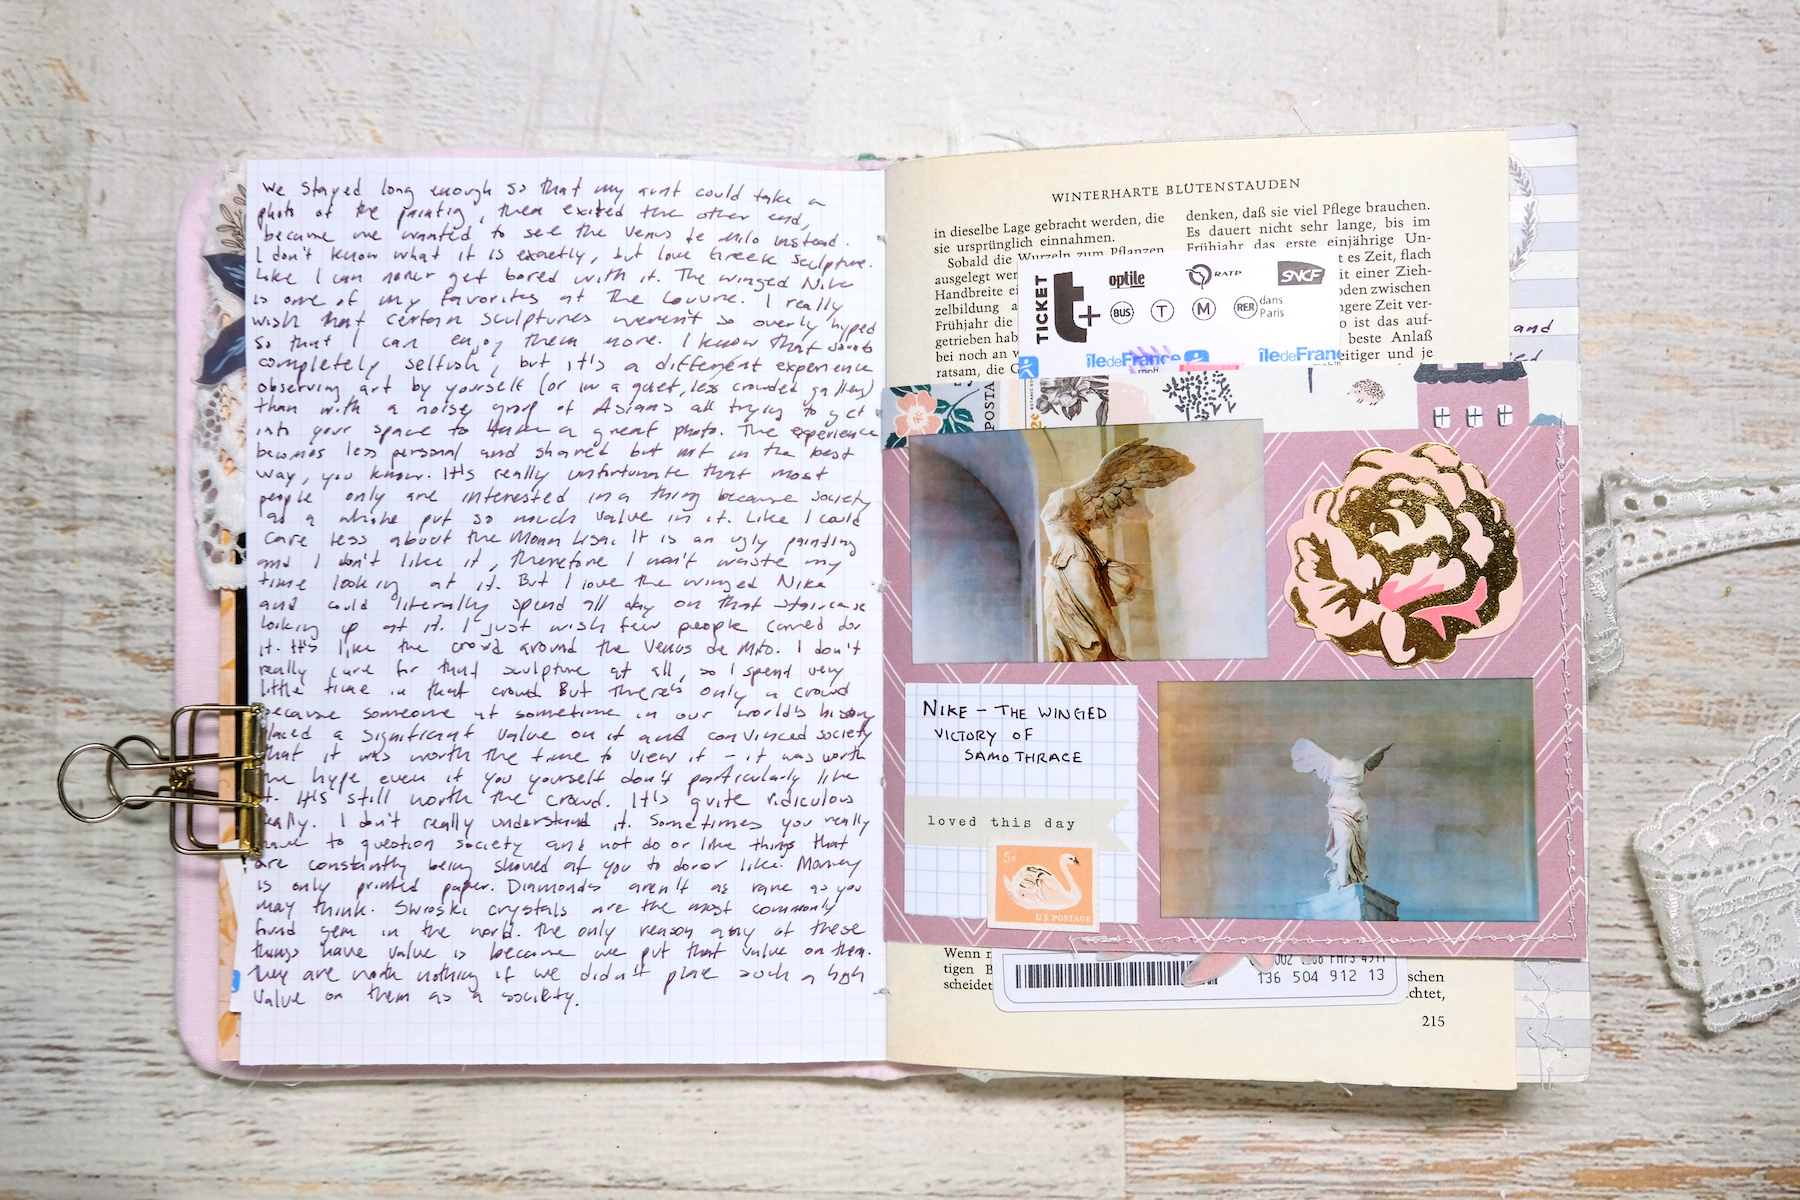 We stayed long enough so that my aunt could take a
photo of the painting, then exited the other end,
because we wanted to see the Venus de Milo instead.
I don't know what it is exactly, but love Greek sculpture.
Like I can never get bored with it. The winged Nike
is one of my favorites at the Louvre. I really
wish that certain sculptures weren't so overly hyped
so that I can enjoy them more. I know that sounds
completely selfish, but it's a different experience
observing art by yourself (or in a quiet, less crowded gallery)
than with a noisy group of Asians all trying to get
into your space to take a great photo. The experience
becomes less personal and shared but not in the best
way, you know. It's really unfortunate that most
people only are interested in a thing because society
as a whole put so much value in it. Like I could
care less about the Mona Lisa. It is an ugly painting
and I don't like it, therefore I won't waste my
time looking at it. But I love the winged Nike
and could literally spend all day on that staircase
looking up at it. I just wish few people cared for
it. It's like the crowd around the Venus de Milo. I don't
really care for that sculpture at all, so I spend very
little time in that crowd But there's only a crowd
because someone at sometime in our world's history
placed a significant value on it and convinced society
that it was worth the time to view it – it was worth
the hype even if you yourself don't particularly like
it. It's still worth the crowd. It's quite ridiculous
really. I don't really understand it. Sometimes you really
have to question society and not do or like things that
are constantly being shoved at you to do or like. Money
is only printed paper. Diamonds aren't as rare as you
may think. Swroski crystals are the most commonly
found gem in the world. The only reason any of these
things have value is because we put that value on them.
They are worth nothing if we didn't place such a high
value on them as a society.
WINTERHARTE BLÜTENSTAUDEN
in dieselbe Lage gebracht werden, die
sie ursprünglich einnahmen.
Sobald die Wurzeln zum Pflanzen
ausgelegt wer
Handbreite ei
zelbildung a
Frühjahr die
getrieben hab
bei noch an w
ratsam, die G
denken, daß sie viel Pflege brauchen.
Es dauert nicht sehr lange, bis im
Frühjahr das erste einjährige Un-
t es Zeit, flach
it einer Zieh-
oden zwischen
ngere Zeit ver-
o ist das auf-
beste Anlaß
eitiger und je
TICKET
t+
optile
RATP
SNCF
BUS
T
M
RER
dans
Paris
île de France
mobi
île de Franc
and
POSTA
NIKE – THE WINGED
VICTORY OF
SAMOTHRACE
loved this day
5¢
U.S. POSTAGE
Wenn
tigen B
scheidet
002
136 504 912 13
schen
chtet,
215